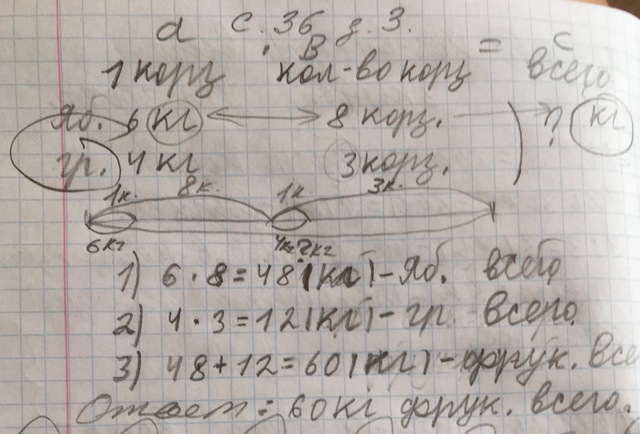 с. 36 з. 3.
a · в = с
1 корз кол-во корз всего
Яб. 6 кг 8 корз. ? кг
гр. 4 кг 3 корз.
1к. 8к. 1к. 3к.
6кг 4кг ?кг
1) 6 · 8 = 48 (кг) - яб. всего
2) 4 · 3 = 12 (кг) - гр. всего.
3) 48 + 12 = 60 (кг) - фрук. все
Ответ: 60 кг фрук. всего.